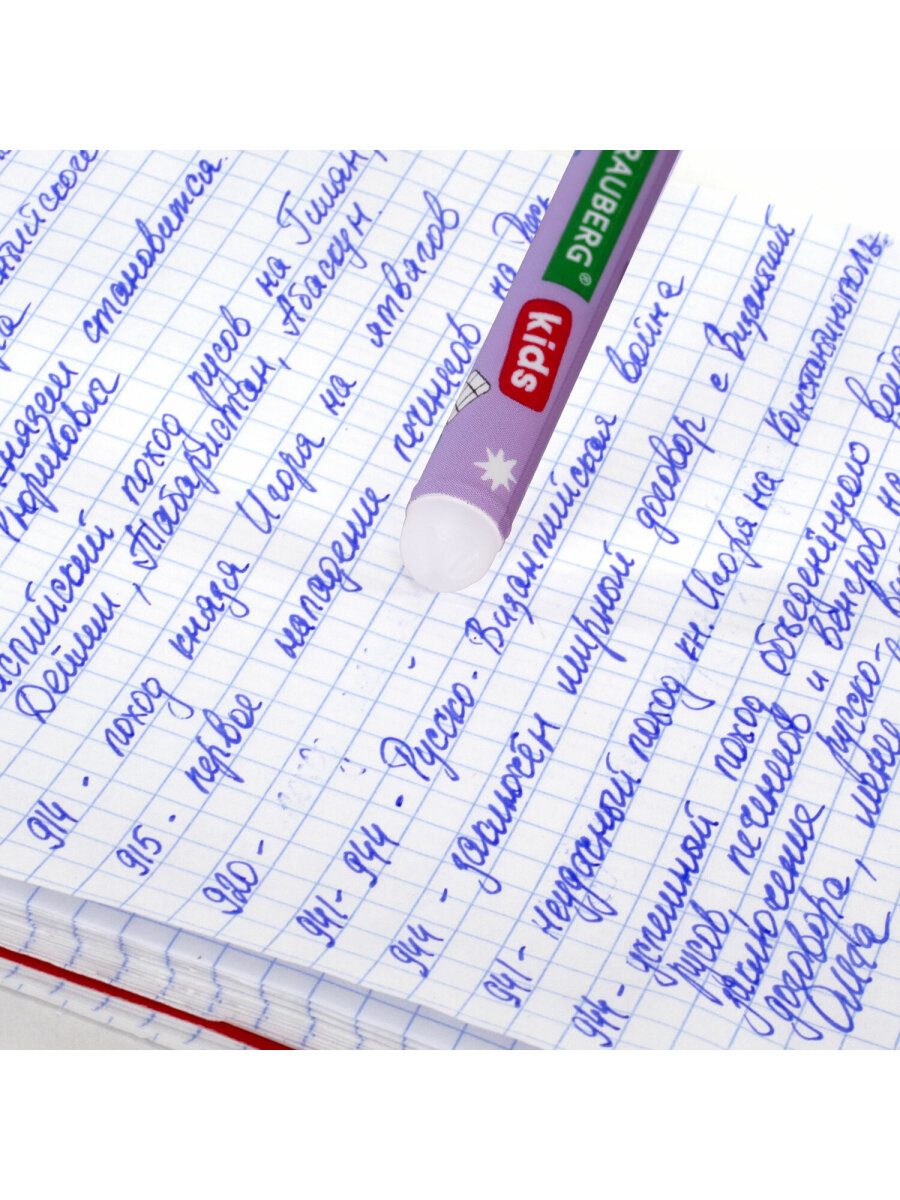 нязем становится
Рюрикович
поход русов на Гилян,
Дейлем, Табаристан, Абаскун.
914 - поход князя Игоря на ятвягов
915 - первое нападение печенегов на Русь
920 -
941 - 944 - Русско - Византийская война
944 - заключён мирной договор с Византией
941 - неудачный поход кн. Игоря на Константинополь.
944 - успешный поход объединённого
русов, печенегов и венгров на
заключение русско-
договора, менее
RAUBERG®
kids